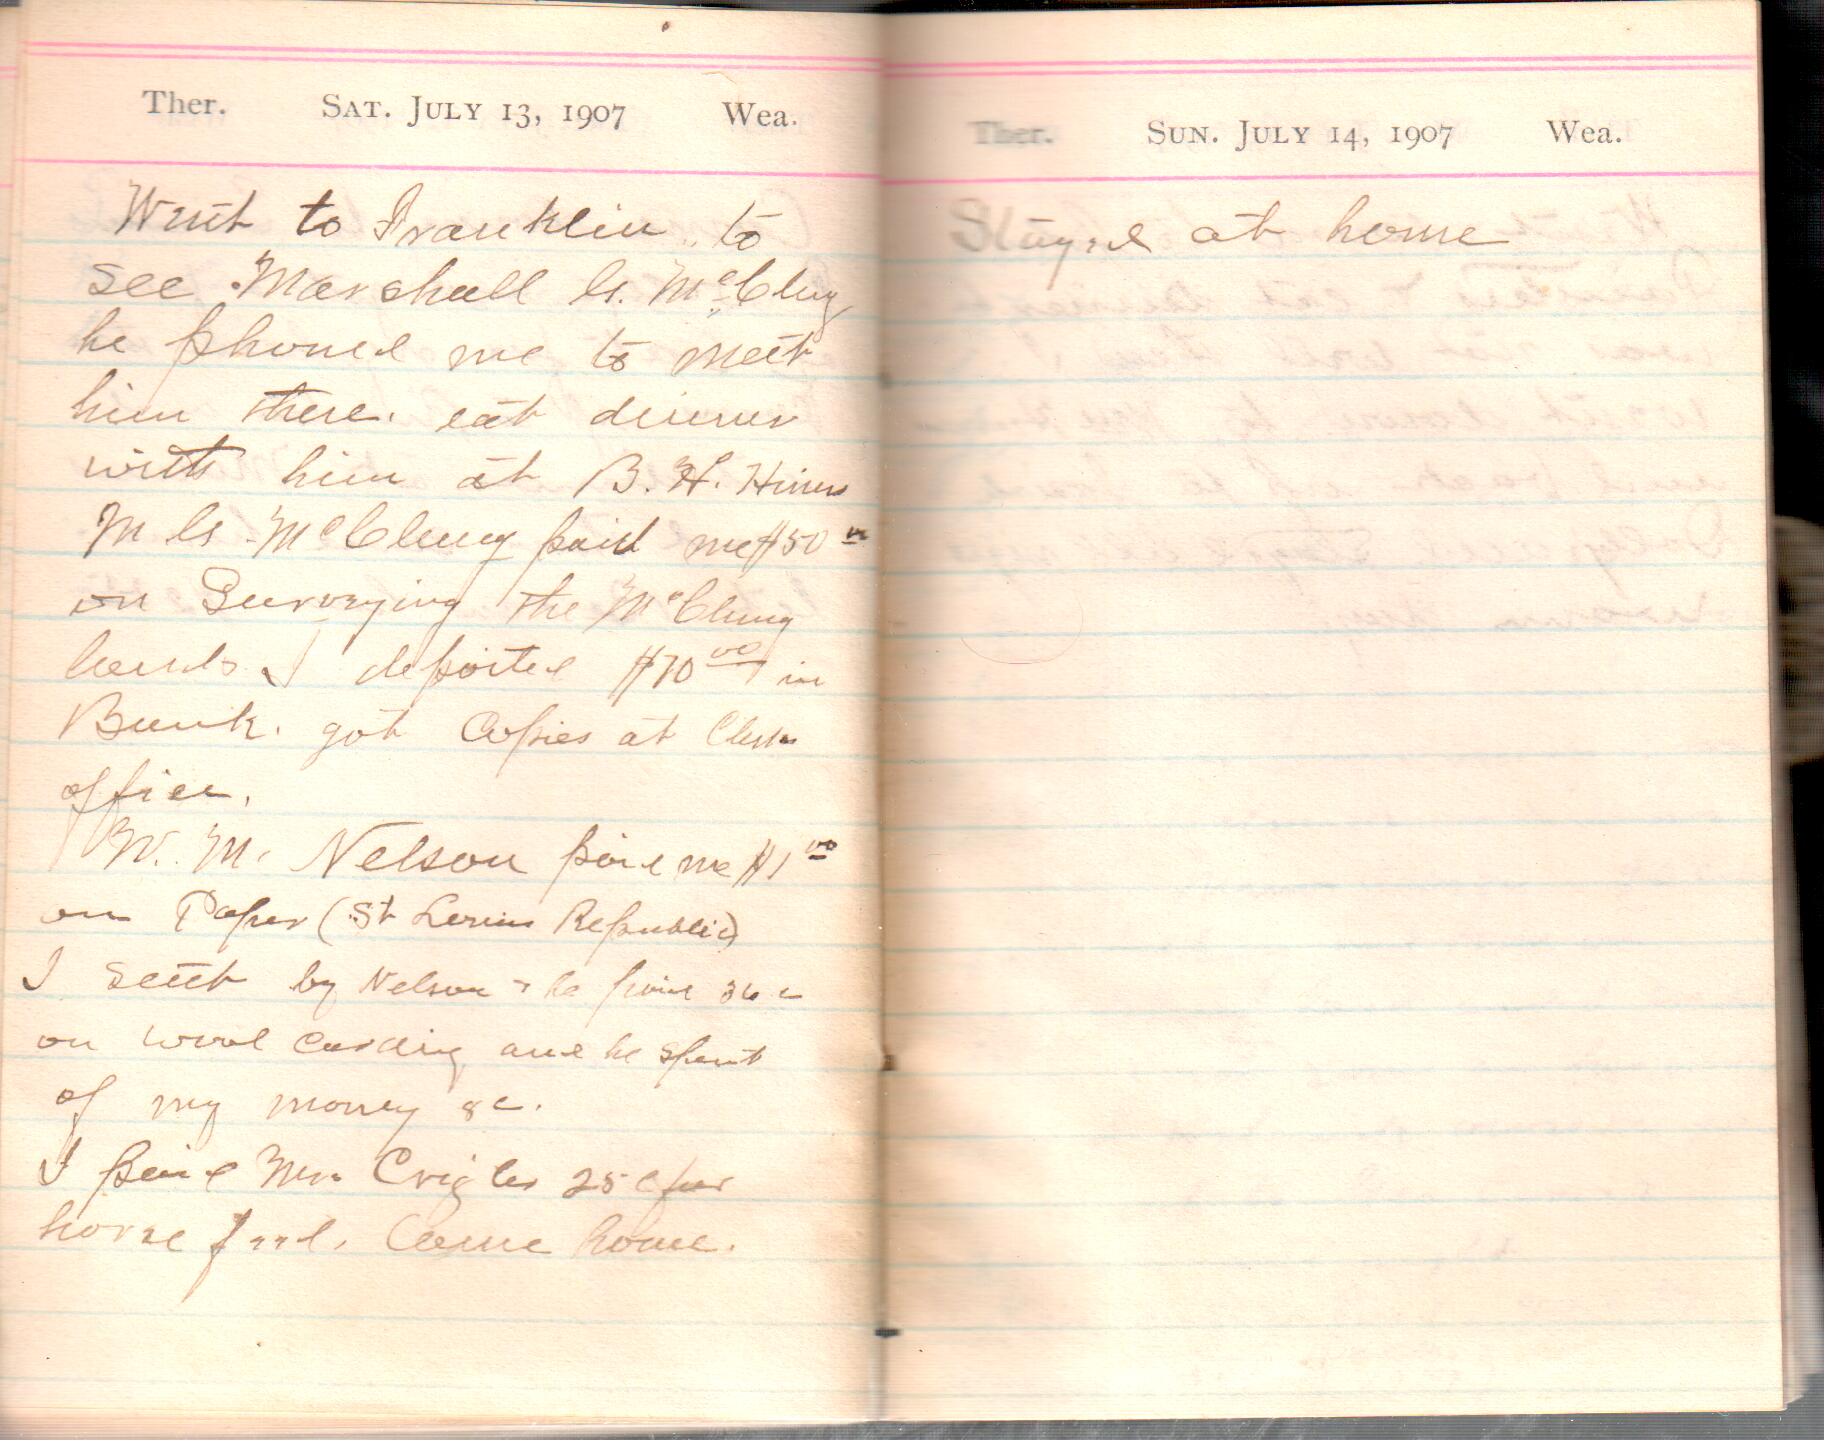 Ther. SAT. JULY 13, 1907 Wea.
Went to Franklin to
see Marshall G. McClung
he phoned me to meet
him there. eat dinner
with him at B. H. Hiners
M G. McClung paid me $50 00
on Surveying the McClung
lands I deposited $70 00 in
Bank. got Copies at Clerks
office.
W. M. Nelson paid me $1 00
on Paper (St Louis Republic)
I sent by Nelson & he paid 36 c
on wool carding and he spent
of my money &c.
I paid Mr. Crigler 25 c for
horse feed. Came home.
Ther. SUN. JULY 14, 1907 Wea.
Stayed at home